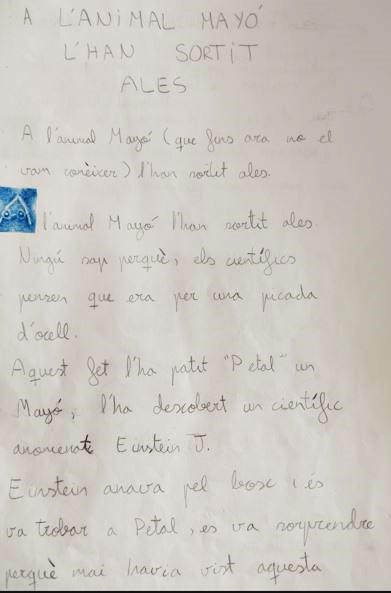 A L'ANIMAL MAYÓ
L'HAN SORTIT
ALES
A l'animal Mayó (que fins ara no el
vam conèixer) l'han sortit ales.
A l'animal Mayó l'han sortit ales.
Ningú sap perquè, els científics
pensen que era per una picada
d'ocell.
Aquest fet l'ha patit "Petal" un
Mayó, l'ha descobert un científic
anomenat Einstein J.
Einstein anava pel bosc i és
va trobar a Petal, es va sorprendre
perquè mai havia vist aquesta